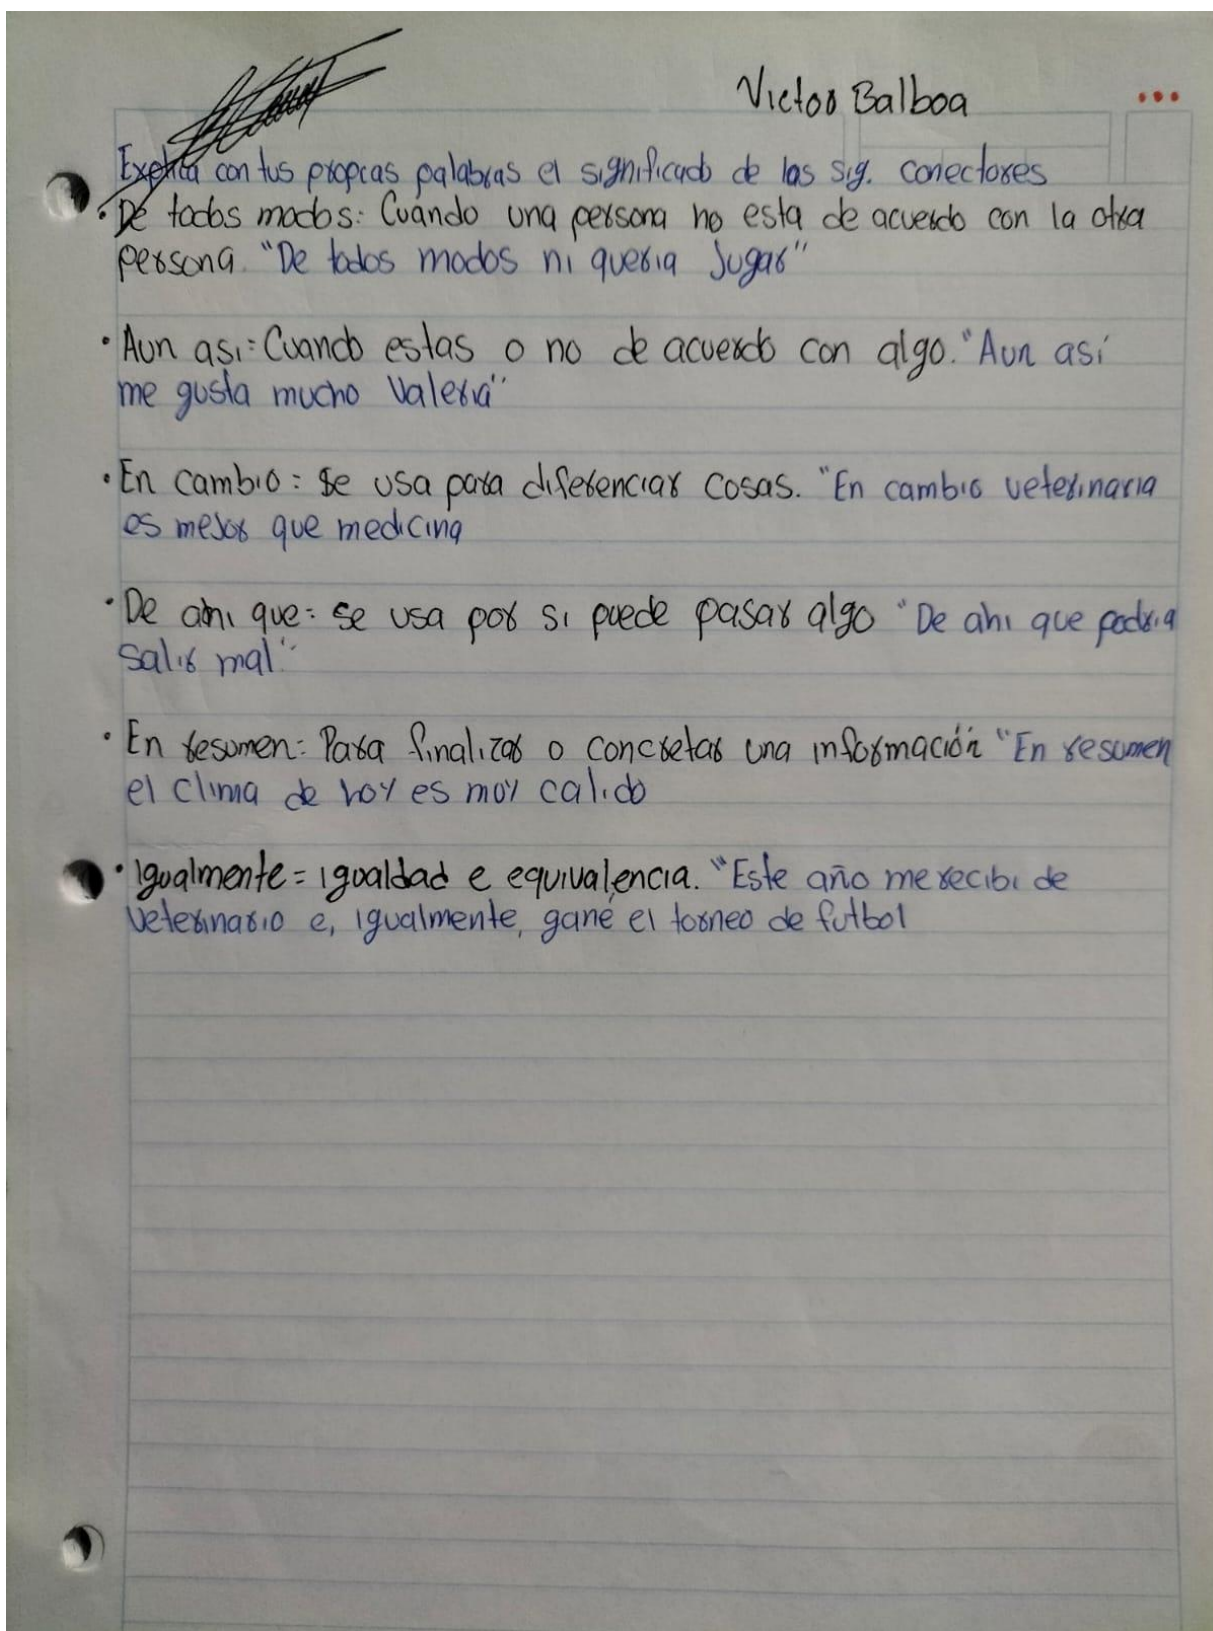 Victor Balboa
Explica con tus propias palabras el significado de los sig. conectores
• De todos modos: Cuando una persona no esta de acuerdo con la otra
persona. "De todos modos ni queria Jugar"
• Aun asi: Cuando estas o no de acuerdo con algo. "Aun así
me gusta mucho Valeria"
• En cambio: se usa para diferenciar cosas. "En cambio veterinaria
es mejor que medicina
• De ahi que: se usa por si puede pasar algo "De ahi que podria
salir mal"
• En resumen: Para finalizar o concretar una información "En resumen
el clima de hoy es muy calido
• Igualmente = igualdad e equivalencia. "Este año me recibi de
Veterinario e, igualmente, gané el torneo de futbol